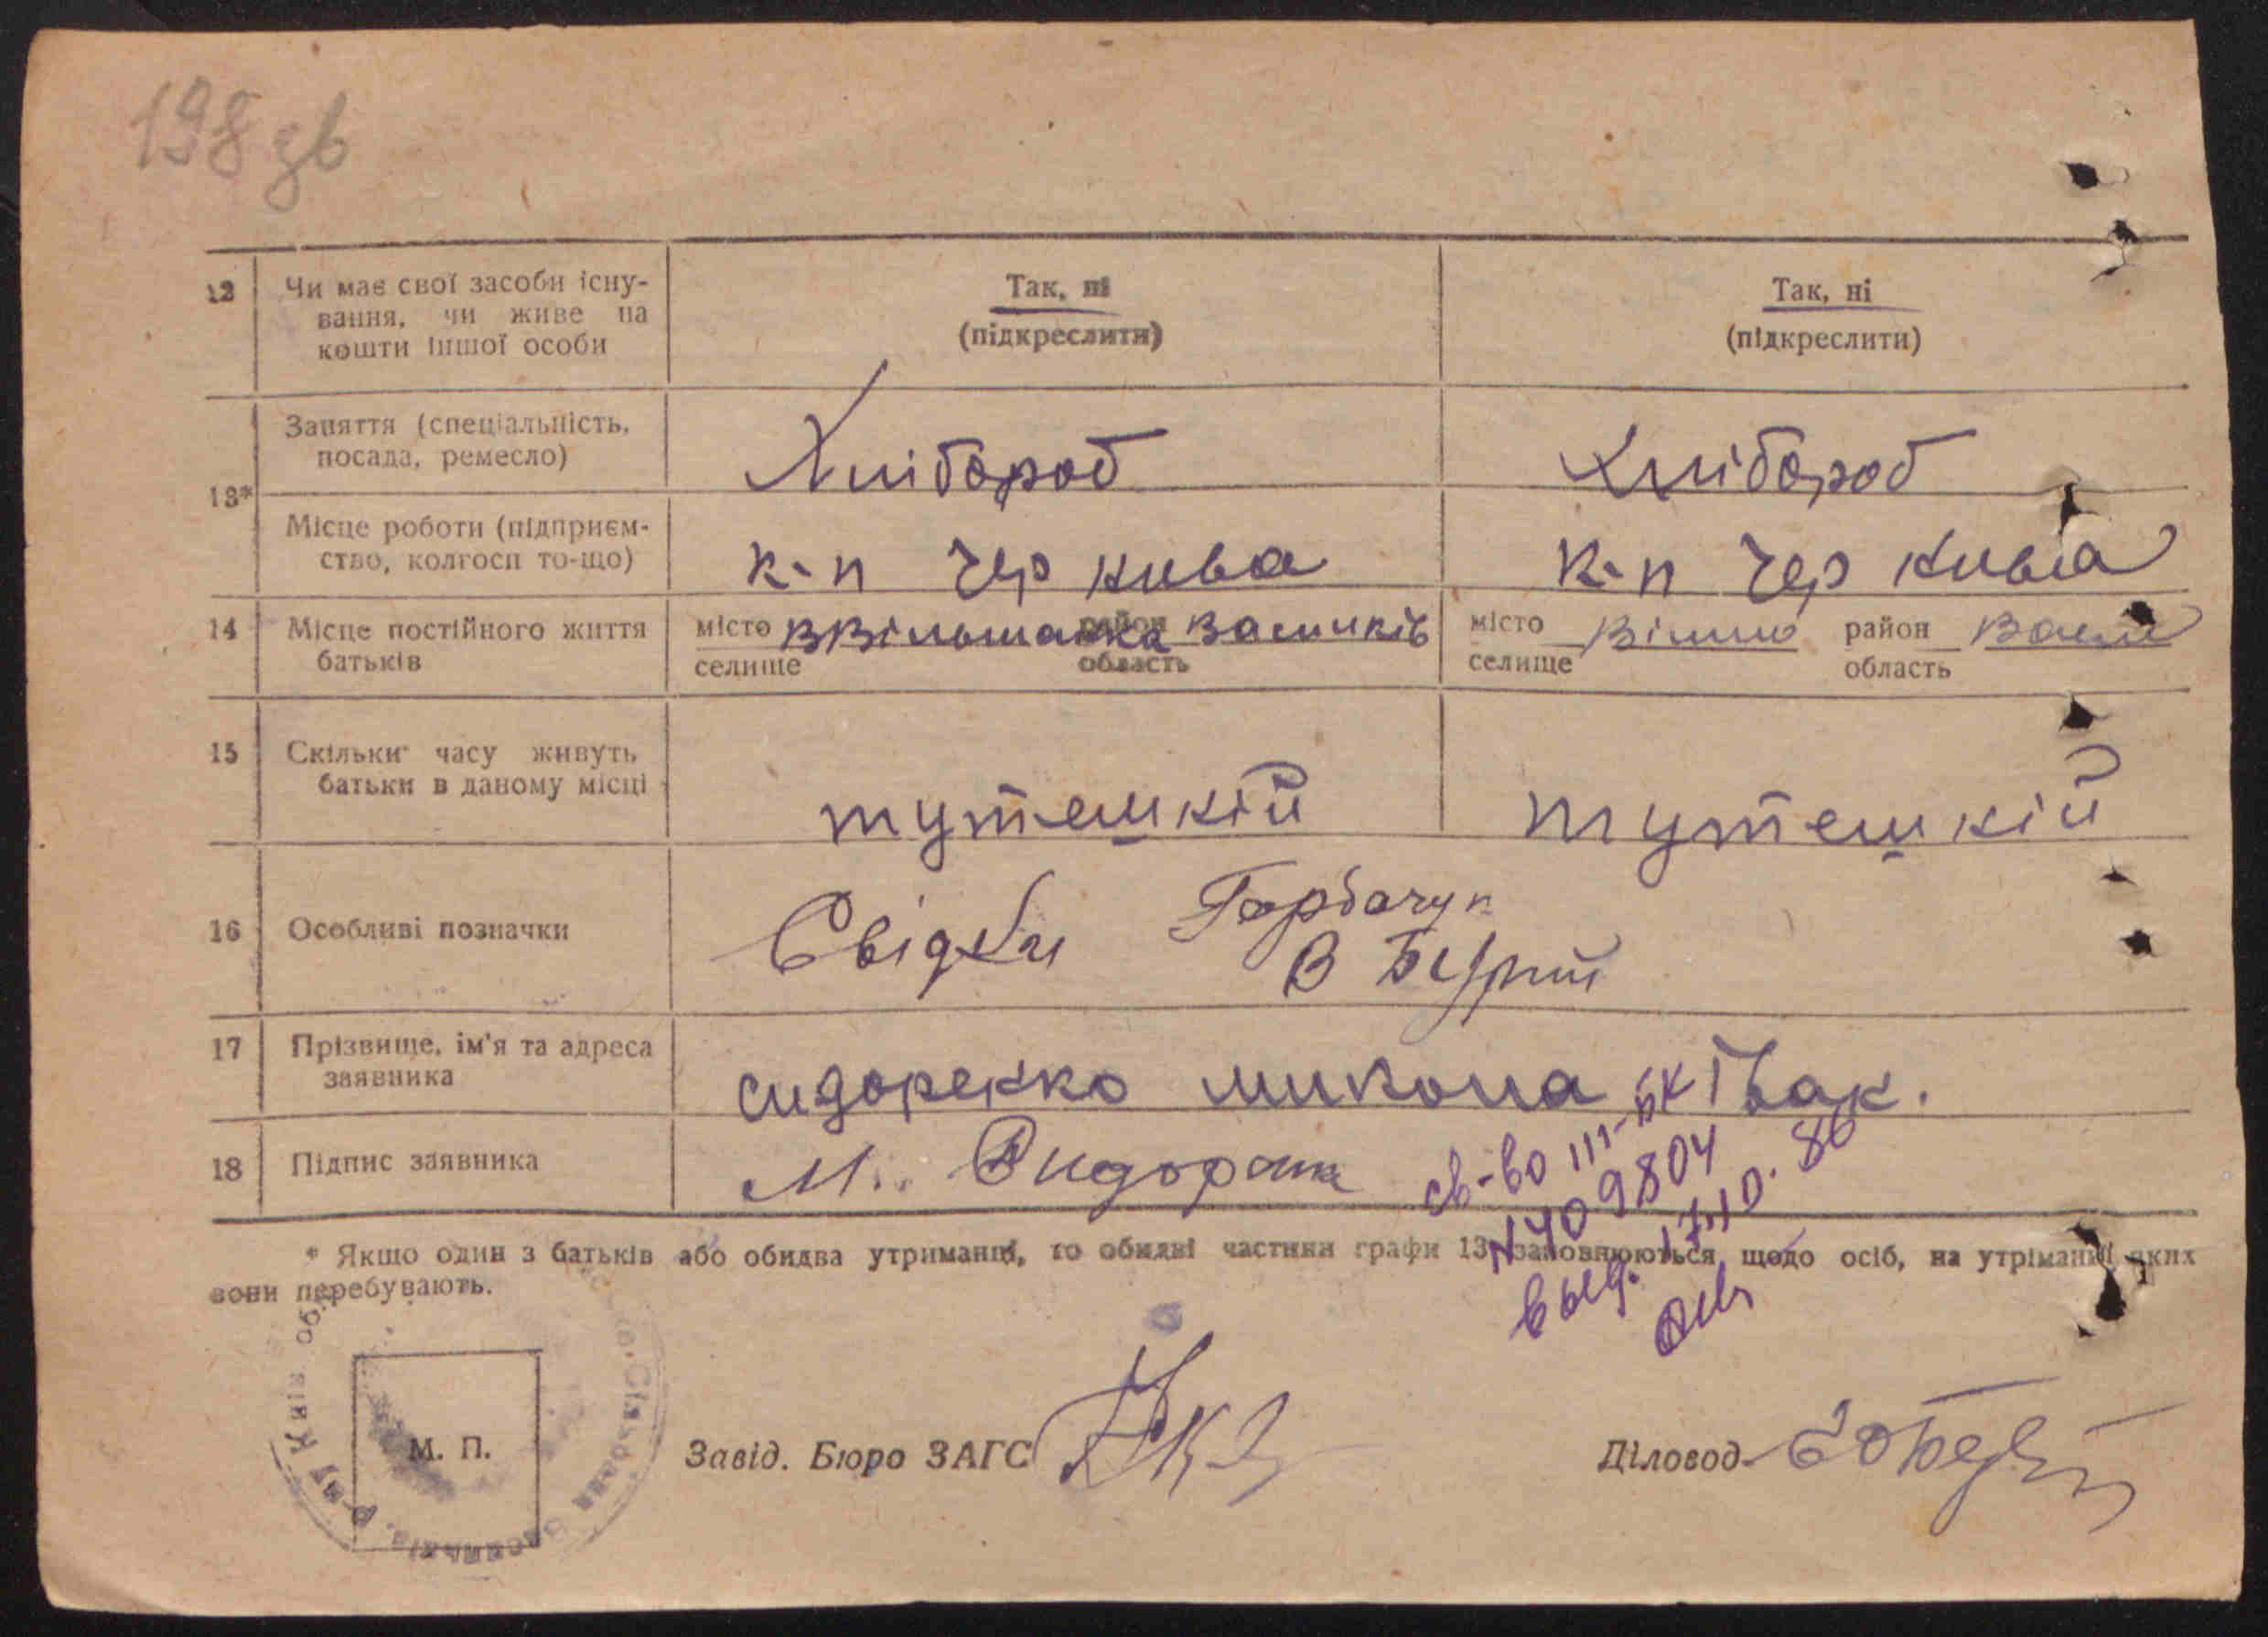 198 зв
12 Чи має свої засоби існу- Так, ні Так, ні
вання, чи живе на (підкреслити) (підкреслити)
кошти іншої особи
Заняття (спеціальність, Хлібороб Хлібороб
посада, ремесло)
13*
Місце роботи (підприєм- к-п Чер нива к-п Чер нива
ство, колгосп то-що)
14 Місце постійного життя місто ВВільшанка район Васильків місто Вільш район Васил
батьків селище область селище область
15 Скільки часу живуть тутешній тутешній
батьки в даному місці
16 Особливі позначки Свідки Горбачук
В
17 Прізвище, ім'я та адреса Сидоренко Микола Івак.
заявника
18 Підпис заявника М. Сидорен
св-во III-БК
N 409804
выд. 17.10.86
* Якщо один з батьків або обидва утриманці, то обидві частини графи 13 заповнюються щодо осіб, на утріманні яких
вони перебувають.
М. П. Завід. Бюро ЗАГС Діловод